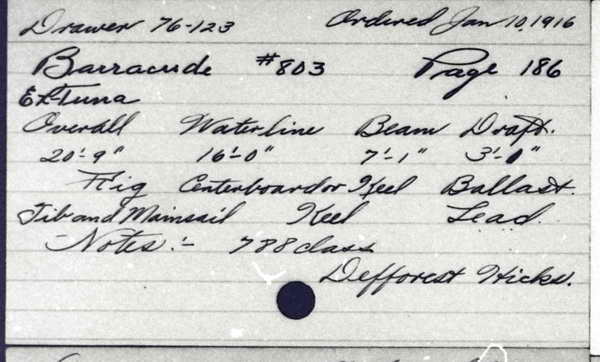 Drawer 76-123 Ordered Jan 10, 1916
Barracude #803 Page 186
Ex-Tuna
Overall Waterline Beam Draft.
20'-9" 16'-0" 7'-1" 3'-0"
Rig Centerboard or Keel Ballast.
Jib and Mainsail Keel Lead.
Notes:- 788 class
Defforest Hicks.